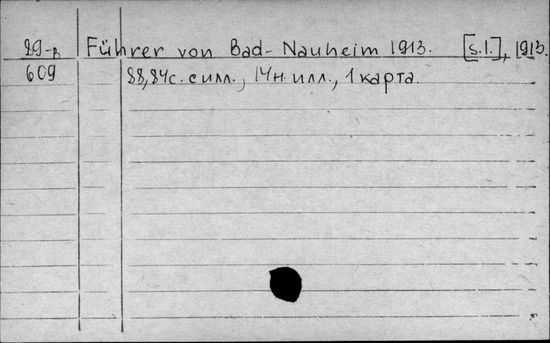 29-в Führer von Bad-Nauheim 1913. [s.l.], 1913.
609 88, 84с. с илл., 14н. илл., 1 карта.